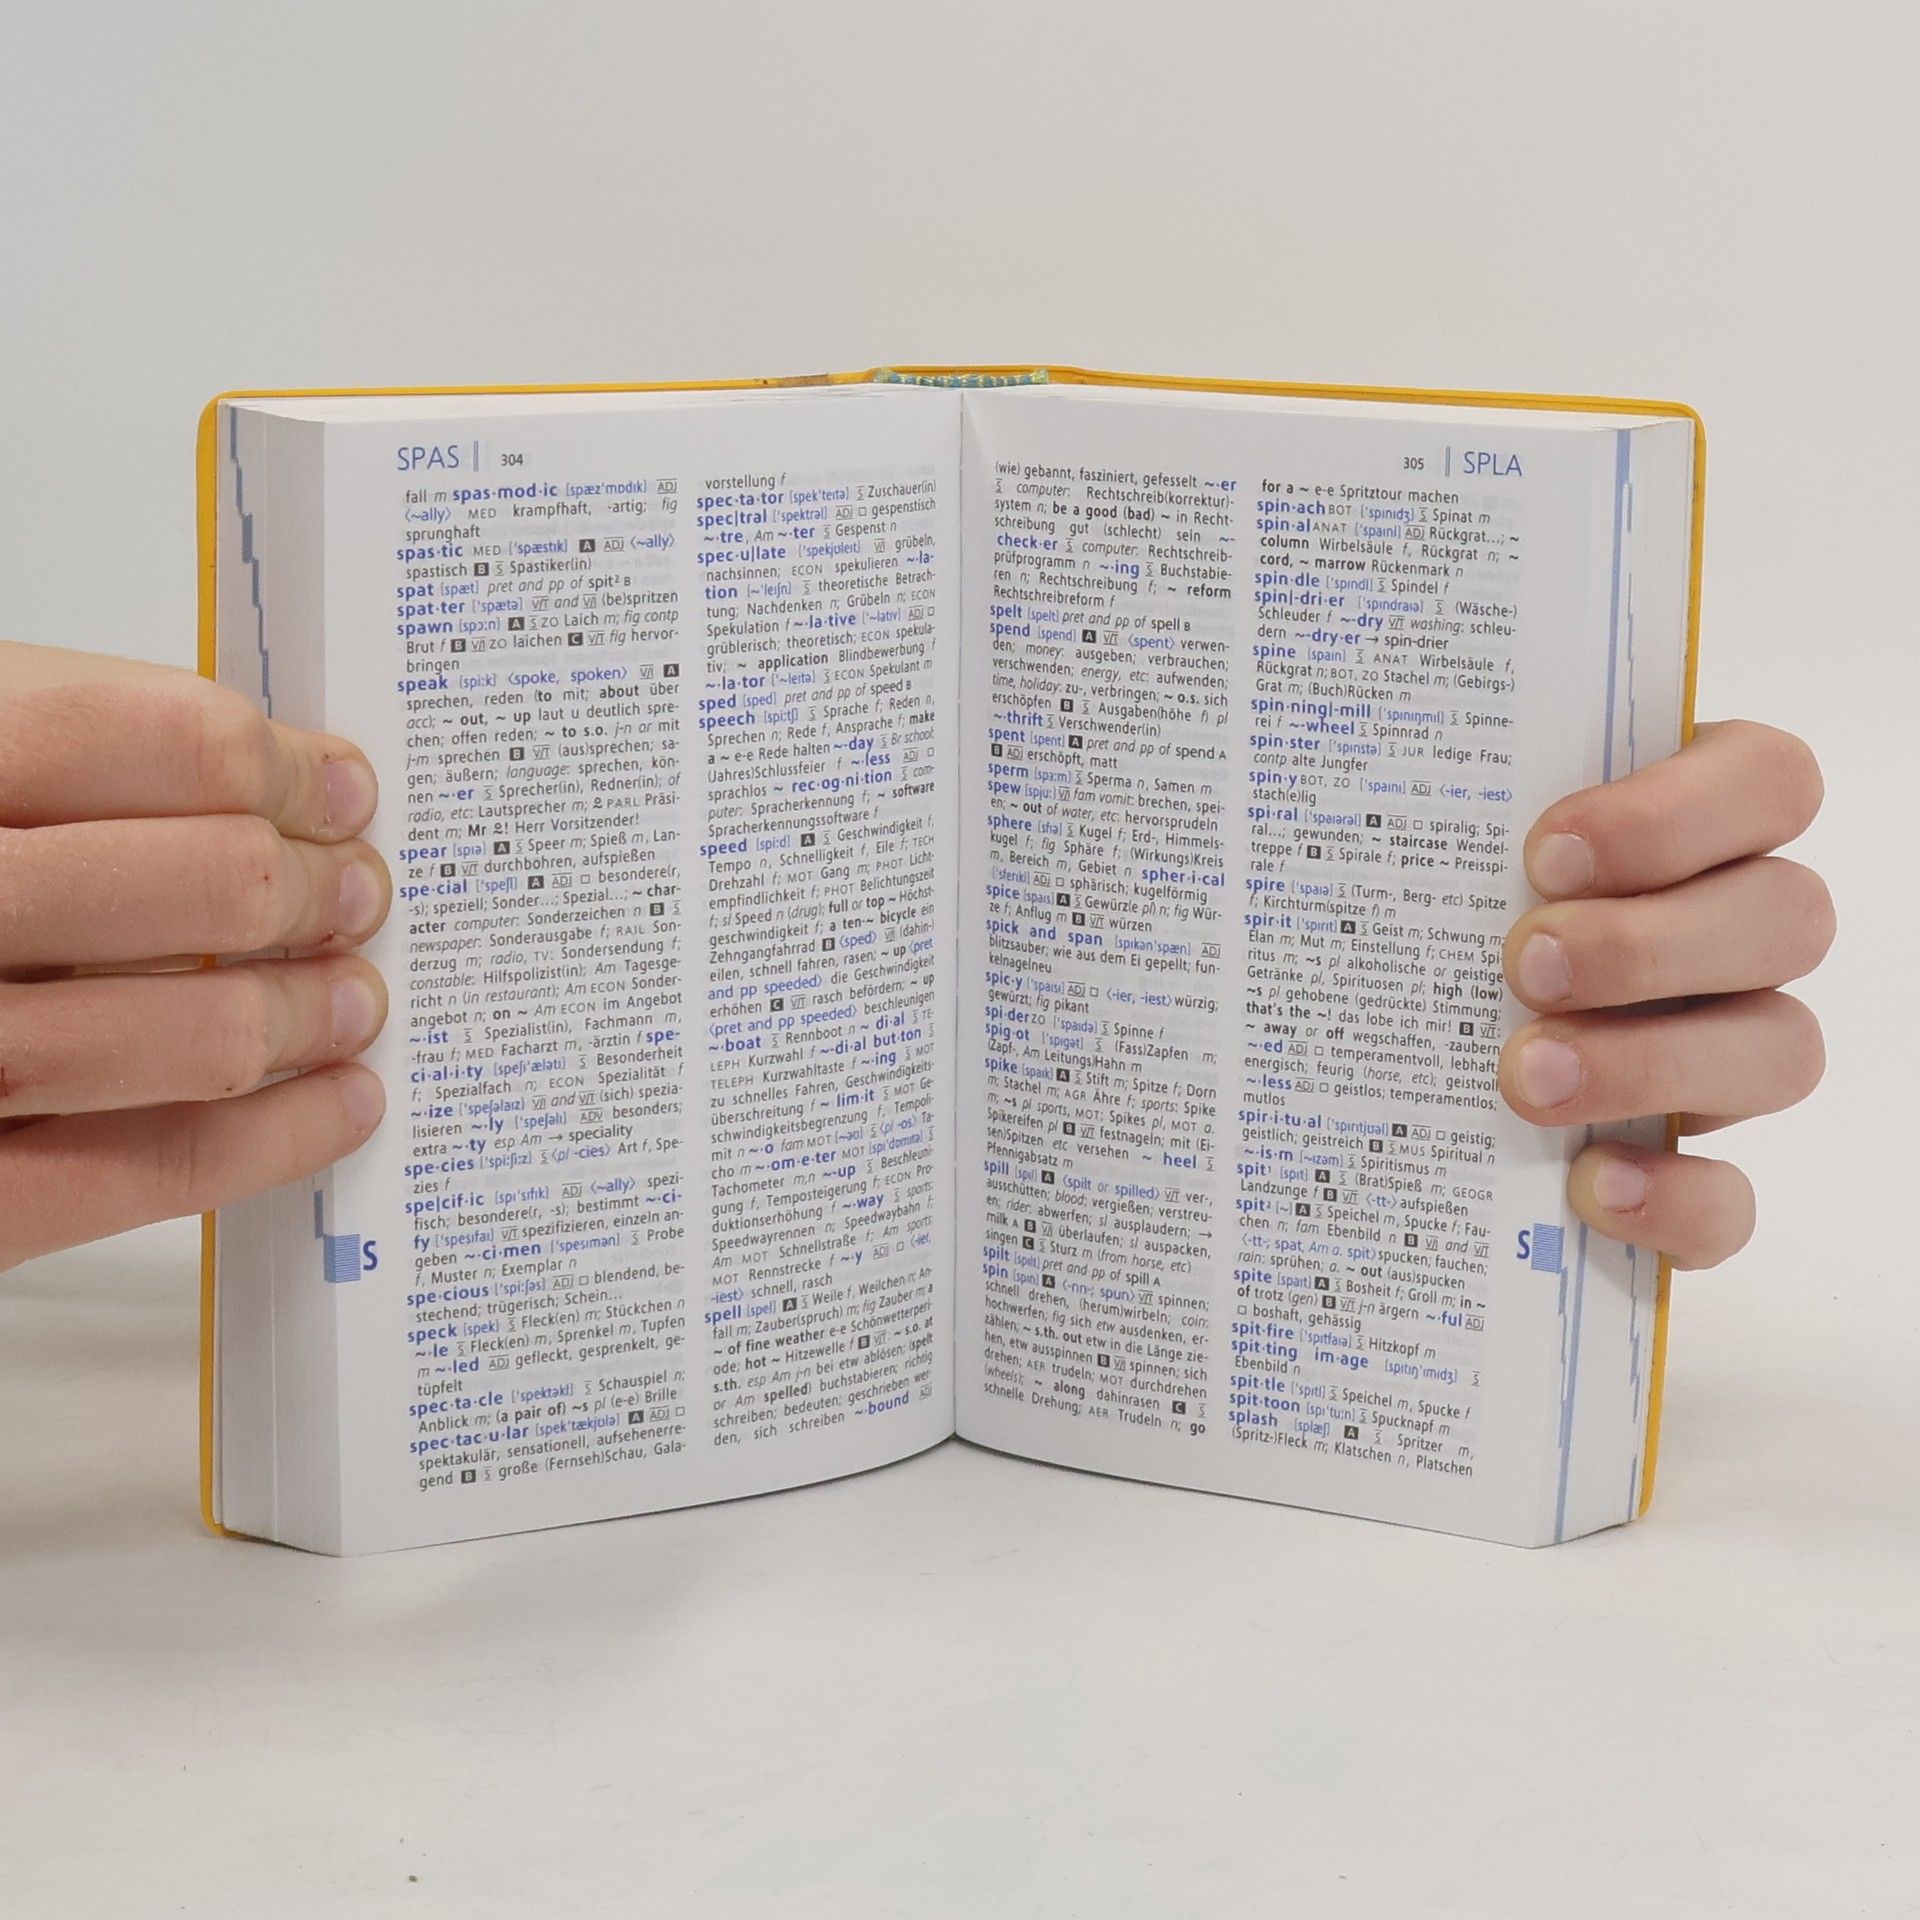 SPAS | 304
fall m spas·mod·ic [spæz'mɒdɪk] ADJ
⟨~ally⟩ MED krampfhaft, -artig; fig
sprunghaft
spas·tic MED ['spæstɪk] A ADJ ⟨~ally⟩
spastisch B S Spastiker(in)
spat [spæt] pret and pp of spit² B
spat·ter ['spætə] V/T and V/I (be)spritzen
spawn [spɔːn] A S ZO Laich m; fig contp
Brut f B V/I ZO laichen C V/T fig hervor-
bringen
speak [spiːk] ⟨spoke, spoken⟩ V/I A
sprechen, reden (to mit; about über
acc); ~ out, ~ up laut u deutlich spre-
chen; offen reden; ~ to s.o. j-n or mit
j-m sprechen B V/T (aus)sprechen; sa-
gen; äußern; language: sprechen, kön-
nen ~·er S Sprecher(in), Redner(in); of
radio, etc: Lautsprecher m; ♀ PARL Präsi-
dent m; Mr ♀! Herr Vorsitzender!
spear [spɪə] A S Speer m; Spieß m, Lan-
ze f B V/T durchbohren, aufspießen
spe·cial ['speʃl] A ADJ □ besondere(r,
-s); speziell; Sonder...; Spezial...; ~ char-
acter computer: Sonderzeichen n B S
newspaper: Sonderausgabe f; RAIL Son-
derzug m; radio, TV: Sondersendung f;
constable: Hilfspolizist(in); Am Tagesge-
richt n (in restaurant); Am ECON Sonder-
angebot n; on ~ Am ECON im Angebot
~·ist S Spezialist(in), Fachmann m,
-frau f; MED Facharzt m, -ärztin f spe-
ci·al·i·ty [speʃɪ'ælətɪ] S Besonderheit
f; Spezialfach n; ECON Spezialität f
~·ize ['speʃəlaɪz] V/I and V/T (sich) spezia-
lisieren ~·ly ['speʃəlɪ] ADV besonders;
extra ~·ty esp Am → speciality
spe·cies ['spiːʃiːz] S ⟨pl -cies⟩ Art f, Spe-
zies f
spe|cif·ic [spɪ'sɪfɪk] ADJ ⟨~ally⟩ spezi-
fisch; besondere(r, -s); bestimmt ~·ci-
fy ['spesɪfaɪ] V/T spezifizieren, einzeln an-
geben ~·ci·men ['spesɪmən] S Probe
f, Muster n; Exemplar n
spe·cious ['spiːʃəs] ADJ □ blendend, be-
stechend; trügerisch; Schein...
speck [spek] S Fleck(en) m; Stückchen n
~·le S Fleck(en) m, Sprenkel m, Tupfen
m ~·led ADJ gefleckt, gesprenkelt, ge-
tüpfelt
spec·ta·cle ['spektəkl] S Schauspiel n;
Anblick m; (a pair of) ~s pl (e-e) Brille
spec·tac·u·lar [spek'tækjʊlə] A ADJ □
spektakulär, sensationell, aufsehenerre-
gend B S große (Fernseh)Schau, Gala-
S
vorstellung f
spec·ta·tor [spek'teɪtə] S Zuschauer(in)
spec|tral ['spektrəl] ADJ □ gespenstisch
~·tre, Am ~·ter S Gespenst n
spec·u|late ['spekjʊleɪt] V/I grübeln,
nachsinnen; ECON spekulieren ~·la-
tion [~'leɪʃn] S theoretische Betrach-
tung; Nachdenken n; Grübeln n; ECON
Spekulation f ~·la·tive ['~lətɪv] ADJ □
grüblerisch; theoretisch; ECON spekula-
tiv; ~ application Blindbewerbung f
~·la·tor ['~leɪtə] S ECON Spekulant m
sped [sped] pret and pp of speed B
speech [spiːtʃ] S Sprache f; Reden n,
Sprechen n; Rede f, Ansprache f; make
a ~ e-e Rede halten ~·day S Br school:
(Jahres)Schlussfeier f ~·less ADJ □
sprachlos ~ rec·og·ni·tion S com-
puter: Spracherkennung f; ~ software
Spracherkennungssoftware f
speed [spiːd] A S Geschwindigkeit f,
Tempo n, Schnelligkeit f, Eile f; TECH
Drehzahl f; MOT Gang m; PHOT Licht-
empfindlichkeit f; PHOT Belichtungszeit
f; sl Speed n (drug); full or top ~ Höchst-
geschwindigkeit f; a ten-~ bicycle ein
Zehngangfahrrad B ⟨sped⟩ V/I (dahin-)
eilen, schnell fahren, rasen; ~ up ⟨pret
and pp speeded⟩ die Geschwindigkeit
erhöhen C V/T rasch befördern; ~ up
⟨pret and pp speeded⟩ beschleunigen
~·boat S Rennboot n ~ di·al S TE-
LEPH Kurzwahl f ~-di·al but·ton S
TELEPH Kurzwahltaste f ~·ing S MOT
zu schnelles Fahren, Geschwindigkeits-
überschreitung f ~ lim·it S MOT Ge-
schwindigkeitsbegrenzung f, Tempoli-
mit n ~·o fam MOT [~əʊ] S ⟨pl -os⟩ Ta-
cho m ~·om·e·ter MOT [spɪ'dɒmɪtə] S
Tachometer m,n ~-up S Beschleuni-
gung f, Temposteigerung f; ECON Pro-
duktionserhöhung f ~·way S sports:
Speedwayrennen n; Speedwaybahn f;
Am MOT Schnellstraße f; Am sports:
MOT Rennstrecke f ~·y ADJ □ ⟨-ier,
-iest⟩ schnell, rasch
spell [spel] A S Weile f, Weilchen n; An-
fall m; Zauber(spruch) m; fig Zauber m; a
~ of fine weather e-e Schönwetterperi-
ode; hot ~ Hitzewelle f B V/T: ~ s.o. at
s.th. esp Am j-n bei etw ablösen; ⟨spelt
or Am spelled⟩ buchstabieren; richtig
schreiben; bedeuten; geschrieben wer-
den, sich schreiben ~·bound ADJ
305 | SPLA
(wie) gebannt, fasziniert, gefesselt ~·er
S computer: Rechtschreib(korrektur)-
system n; be a good (bad) ~ in Recht-
schreibung gut (schlecht) sein ~-
check·er S computer: Rechtschreib-
prüfprogramm n ~·ing S Buchstabie-
ren n; Rechtschreibung f; ~ reform
Rechtschreibreform f
spelt [spelt] pret and pp of spell B
spend [spend] A V/T ⟨spent⟩ verwen-
den; money: ausgeben; verbrauchen;
verschwenden; energy, etc: aufwenden;
time, holiday: zu-, verbringen; ~ o.s. sich
erschöpfen B S Ausgaben(höhe f) pl
~·thrift S Verschwender(in)
spent [spent] A pret and pp of spend A
B ADJ erschöpft, matt
sperm [spɜːm] S Sperma n, Samen m
spew [spjuː] V/I fam vomit: brechen, spei-
en; ~ out of water, etc: hervorsprudeln
sphere [sfɪə] S Kugel f; Erd-, Himmels-
kugel f; fig Sphäre f; (Wirkungs)Kreis
m, Bereich m, Gebiet n spher·i·cal
['sferɪkl] ADJ □ sphärisch; kugelförmig
spice [spaɪs] A S Gewürz(e pl) n; fig Wür-
ze f; Anflug m B V/T würzen
spick and span [spɪkən'spæn] ADJ
blitzsauber; wie aus dem Ei gepellt; fun-
kelnagelneu
spic·y [spaɪsɪ] ADJ □ ⟨-ier, -iest⟩ würzig;
gewürzt; fig pikant
spi·der ZO ['spaɪdə] S Spinne f
spig·ot ['spɪgət] S (Fass)Zapfen m;
(Zapf-, Am Leitungs)Hahn m
spike [spaɪk] A S Stift m; Spitze f; Dorn
m; Stachel m; AGR Ähre f; sports: Spike
m; ~s pl sports, MOT: Spikes pl, MOT a.
Spikereifen pl B V/T festnageln; mit (Ei-
sen)Spitzen etc versehen ~ heel S
Pfennigabsatz m
spill [spɪl] A ⟨spilt or spilled⟩ V/T ver-,
ausschütten; blood: vergießen; verstreu-
en; rider: abwerfen; sl ausplaudern; →
milk A B V/I überlaufen; sl auspacken,
singen C S Sturz m (from horse, etc)
spilt [spɪlt] pret and pp of spill A
spin [spɪn] A ⟨-nn-; spun⟩ V/T spinnen;
schnell drehen, (herum)wirbeln; coin:
hochwerfen; fig sich etw ausdenken, er-
zählen; ~ s.th. out etw in die Länge zie-
hen, etw ausspinnen B V/I spinnen; sich
drehen; AER trudeln; MOT durchdrehen
(wheels); ~ along dahinrasen C S
schnelle Drehung; AER Trudeln n; go
for a ~ e-e Spritztour machen
spin·ach BOT ['spɪnɪdʒ] S Spinat m
spin·al ANAT ['spaɪnl] ADJ Rückgrat...; ~
column Wirbelsäule f, Rückgrat n; ~
cord, ~ marrow Rückenmark n
spin·dle ['spɪndl] S Spindel f
spin|-dri·er ['spɪndraɪə] S (Wäsche-)
Schleuder f ~-dry V/T washing: schleu-
dern ~-dry·er → spin-drier
spine [spaɪn] S ANAT Wirbelsäule f,
Rückgrat n; BOT, ZO Stachel m; (Gebirgs-)
Grat m; (Buch)Rücken m
spin·ning|-mill ['spɪnɪŋmɪl] S Spinne-
rei f ~-wheel S Spinnrad n
spin·ster ['spɪnstə] S JUR ledige Frau;
contp alte Jungfer
spin·y BOT, ZO ['spaɪnɪ] ADJ ⟨-ier, -iest⟩
stach(e)lig
spi·ral ['spaɪərəl] A ADJ □ spiralig; Spi-
ral...; gewunden; ~ staircase Wendel-
treppe f B S Spirale f; price ~ Preisspi-
rale f
spire ['spaɪə] S (Turm-, Berg- etc) Spitze
f; Kirchturm(spitze f) m
spir·it ['spɪrɪt] A S Geist m; Schwung m;
Elan m; Mut m; Einstellung f; CHEM Spi-
ritus m; ~s pl alkoholische or geistige
Getränke pl, Spirituosen pl; high (low)
~s pl gehobene (gedrückte) Stimmung;
that's the ~! das lobe ich mir! B V/T:
~ away or off wegschaffen, -zaubern
~·ed ADJ □ temperamentvoll, lebhaft;
energisch; feurig (horse, etc); geistvoll
~·less ADJ □ geistlos; temperamentlos;
mutlos
spir·i·tu·al ['spɪrɪtjʊəl] A ADJ □ geistig;
geistlich; geistreich B S MUS Spiritual n
~·is·m [~ɪzəm] S Spiritismus m
spit¹ [spɪt] A S (Brat)Spieß m; GEOGR
Landzunge f B V/T ⟨-tt-⟩ aufspießen
spit² [~] A S Speichel m, Spucke f; Fau-
chen n; fam Ebenbild n B V/I and V/T
⟨-tt-; spat, Am a. spit⟩ spucken; fauchen;
rain: sprühen; a. ~ out (aus)spucken
spite [spaɪt] A S Bosheit f; Groll m; in ~
of trotz (gen) B V/T j-n ärgern ~·ful ADJ
□ boshaft, gehässig
spit·fire ['spɪtfaɪə] S Hitzkopf m
spit·ting im·age [spɪtɪŋ'ɪmɪdʒ] S
Ebenbild n
spit·tle ['spɪtl] S Speichel m, Spucke f
spit·toon [spɪ'tuːn] S Spucknapf m
splash [splæʃ] A S Spritzer m,
(Spritz-)Fleck m; Klatschen n, Platschen
S